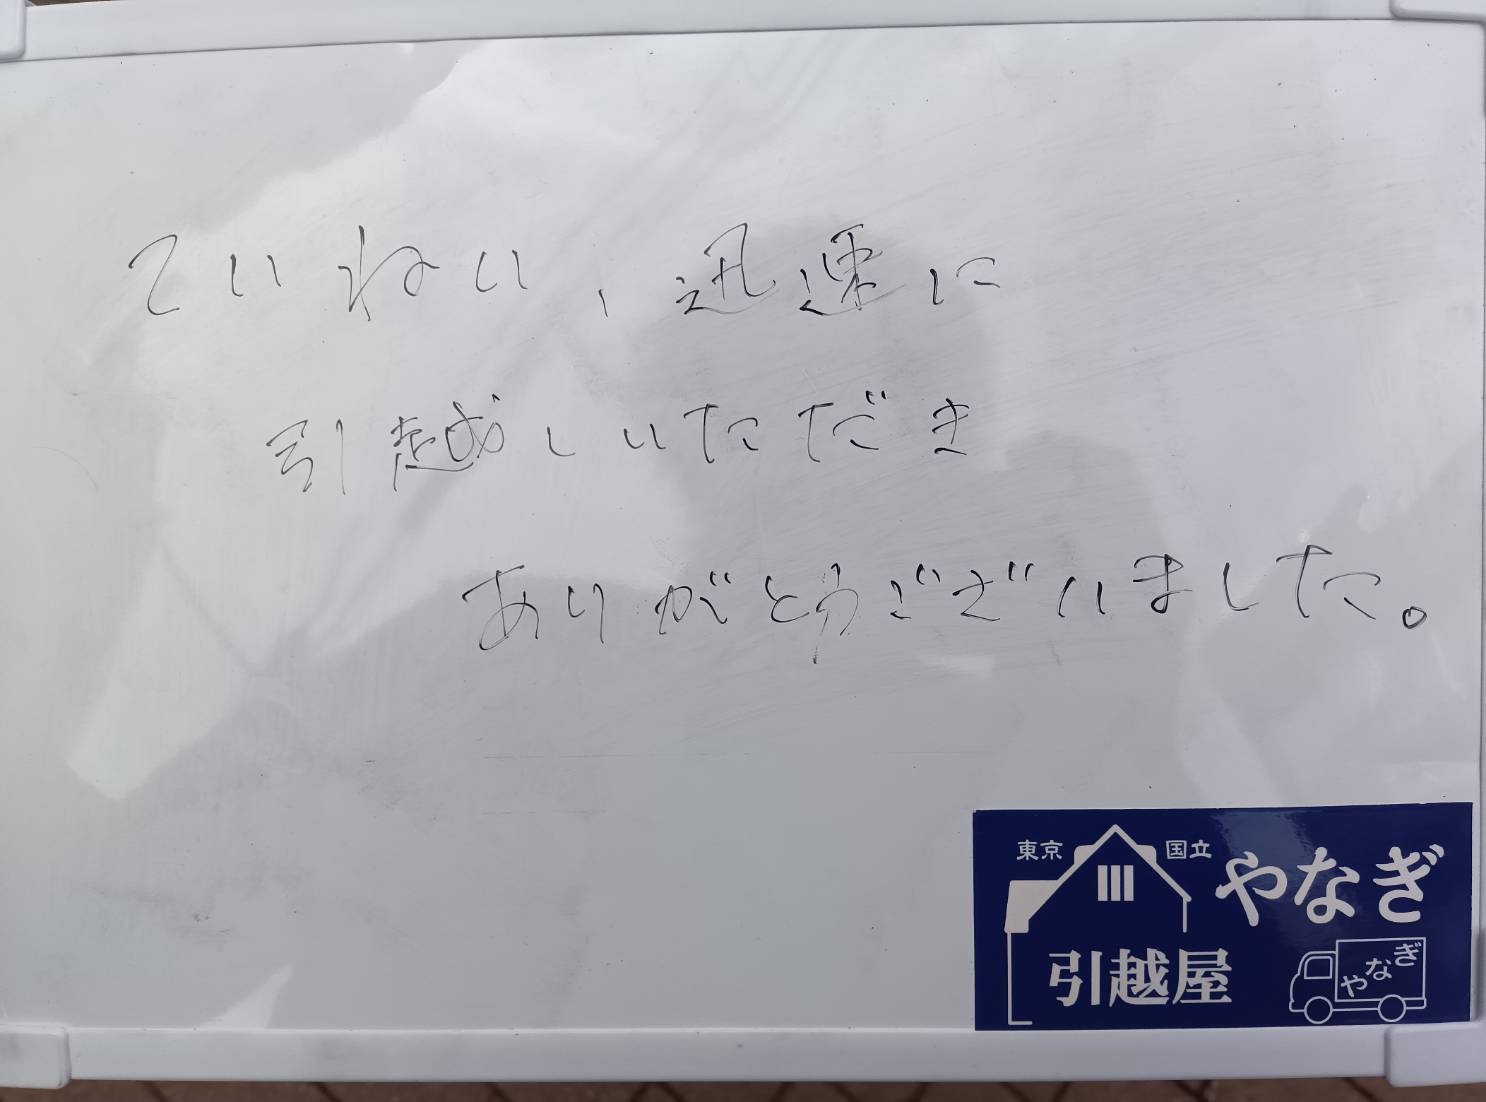 ていねい、迅速に
引越しいただき
ありがとうございました。
東京 国立 やなぎ
引越屋
やなぎ